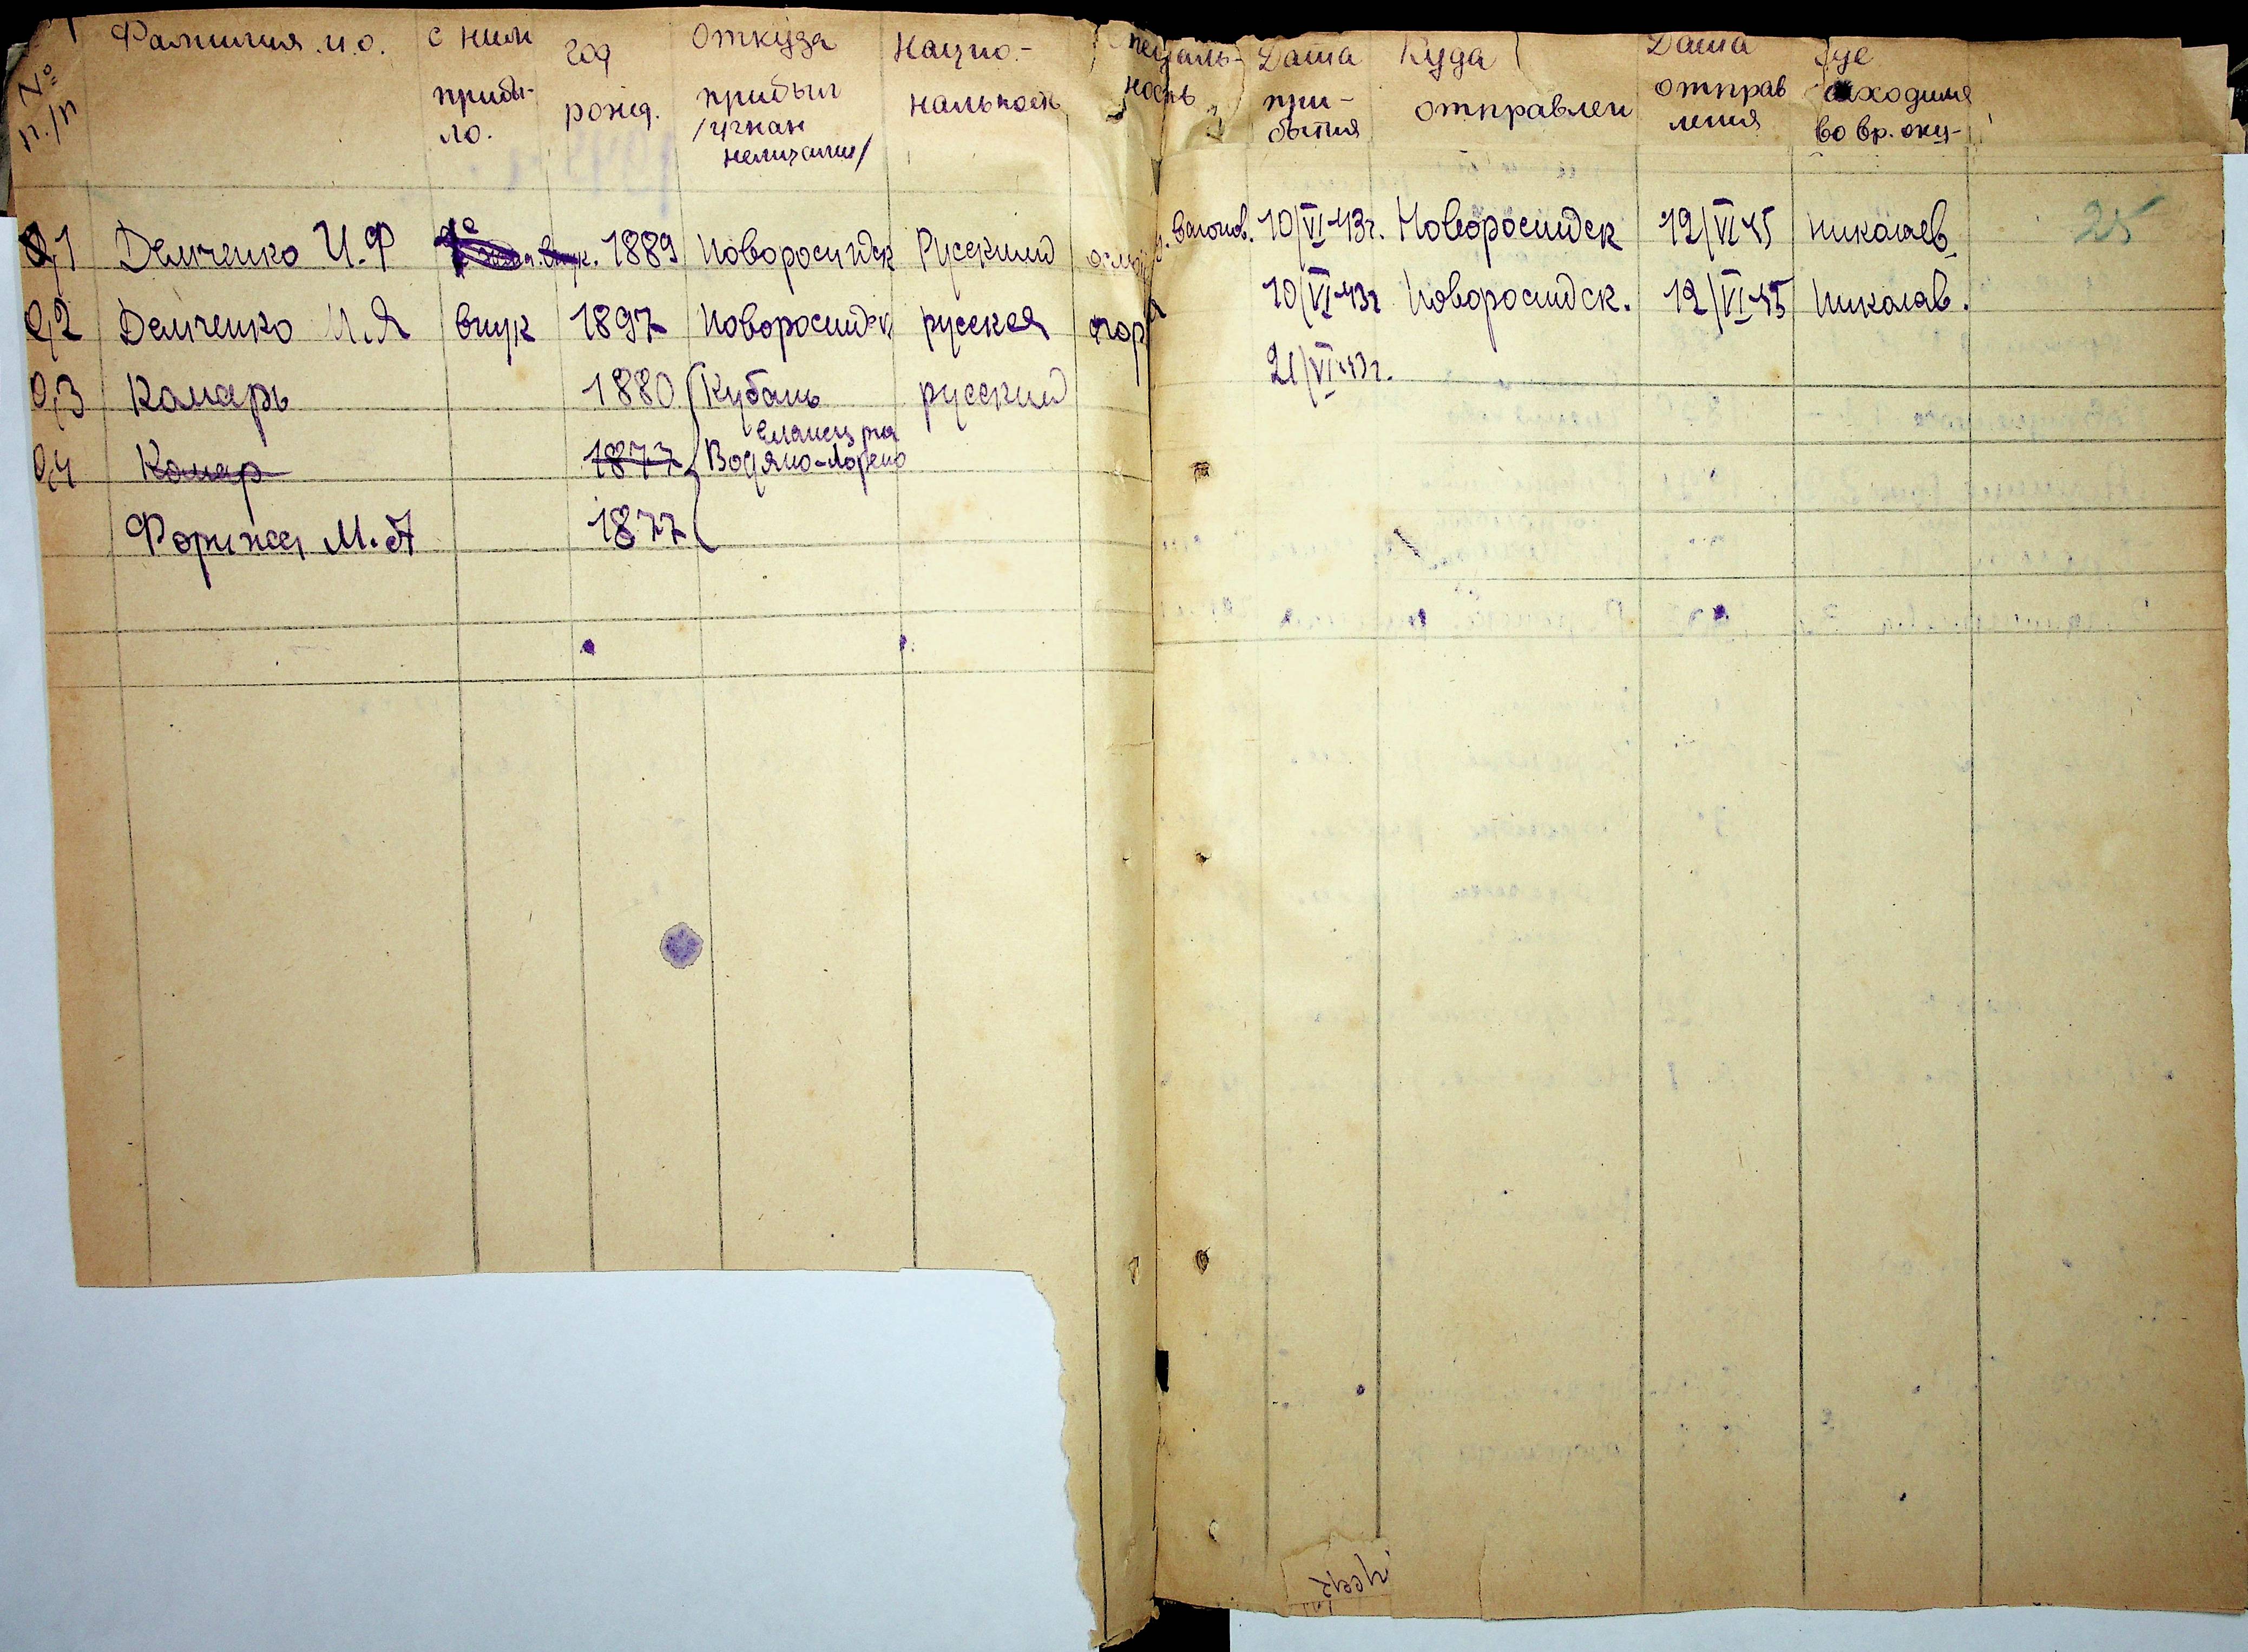 № п./п Фамилия.и.о. с ним прибы-ло. год рожд. Откуда прибыл /угнан немцами/ Нацио.-нальность Специаль-ность Дата при-бытия Куда отправлен Дата отправ ления Где находился во вр. окку-
25
Демченко И.Ф 1889 Новоросийск Русский осмот. вагонов. 10/VI-43г. Новоросийск 12/VI 45 Николаев.
2 Демченко М.Я внук 1897 Новоросийск русская 10/VI-43г Новоросийск. 12/VI-45 Николав.
3 Комарь 1880 Кубань русский 21/VI-43г.
4 Комар 1877 станица
М.А 1877